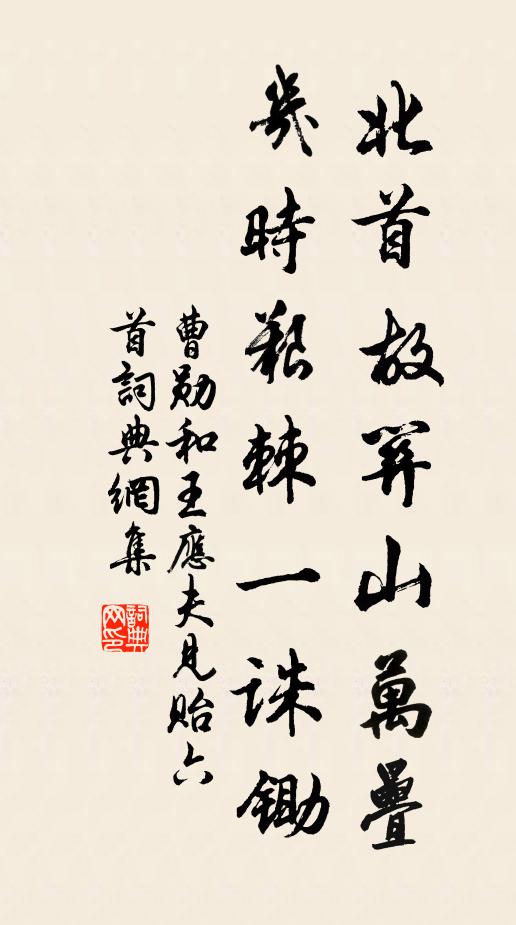 北首故關山萬疊
幾時艱棘一誅鋤
曹勛和王應夫見貽六
首詞典網集
詞典网印